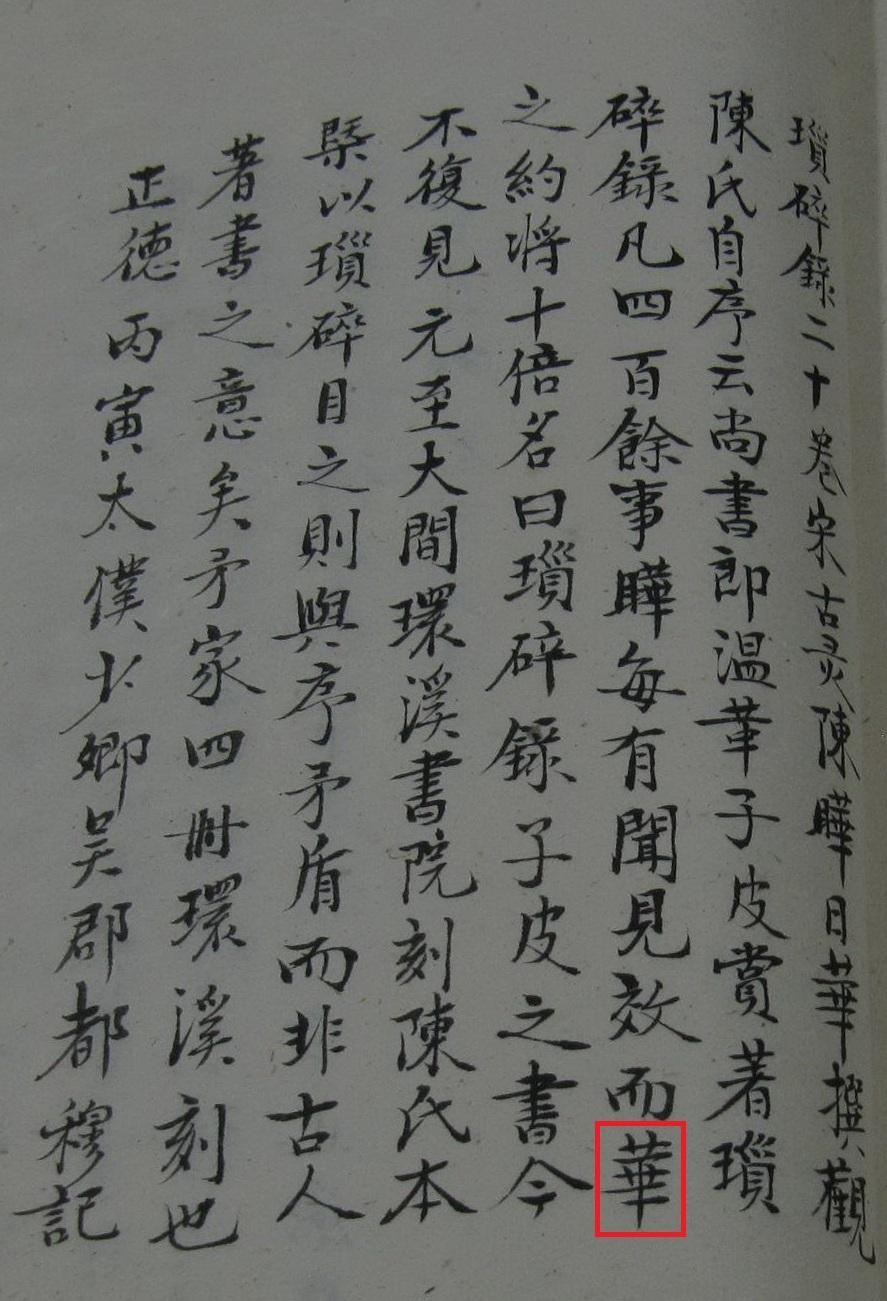 瑣碎錄二十卷宋古灵陳曄日華撰觀
陳氏自序云尚書郎温革子皮賞著瑣
碎錄凡四百餘事曄每有聞見效而華
之約將十倍名曰瑣碎錄子皮之書今
不復見元至大間環溪書院刻陳氏本
槩以瑣碎目之則與序矛盾而非古人
著書之意矣矛家四冊環溪刻也
正德丙寅太僕少卿吴郡都穆記